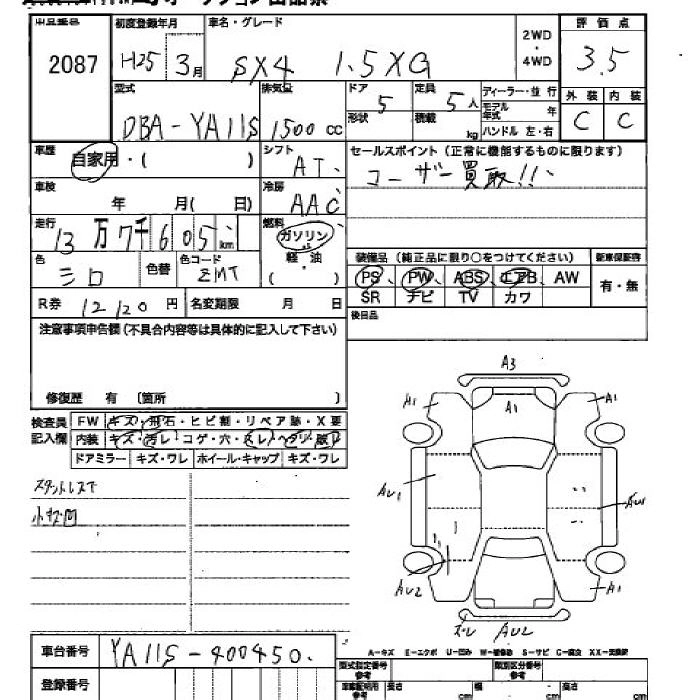 出品番号 初度登録年月 車名・グレード 2WD・4WD 評価点
2087 H25 3月 SX4 1.5XG 3.5
型式 排気量 ドア 5 定員 5人 ディーラー・並行 外装 内装
DBA-YA11S 1500cc 形状 積載 kg モデル年式 年 C C
ハンドル 左・右
車歴 自家用・( ) シフト AT セールスポイント(正常に機能するものに限ります)
車検 年 月( 日) 冷房 AAC ユーザー買取!!
走行 13万7千605km 燃料 ガソリン
軽・油
( )
色 シロ 色替 色コード ZMT
装備品(純正品に限り○をつけてください) 新車保証書
PS PW ABS エアB AW 有・無
SR ナビ TV カワ
R券 12120円 名変期限 月 日 後日品
注意事項申告欄(不具合内容等は具体的に記入して下さい)
修復歴 有 〔箇所 〕
検査員記入欄 FW キズ・飛石・ヒビ割・リペア跡・X要
内装 キズ・汚レ・コゲ・穴・スレ・ヘタリ・破レ
ドアミラー キズ・ワレ ホイール・キャップ キズ・ワレ
スタットレス下
小キズ凹
A3
A1 A1 A1
AU1 AU1
AU2 A1
ズレ AU2
A-キズ E-エクボ U-凹み W-補修跡 S-サビ C-腐食 XX-交換跡
車台番号 YA11S-400450
型式指定番号 参考 類別区分番号 参考
登録番号
長さ cm 幅 cm 高さ cm